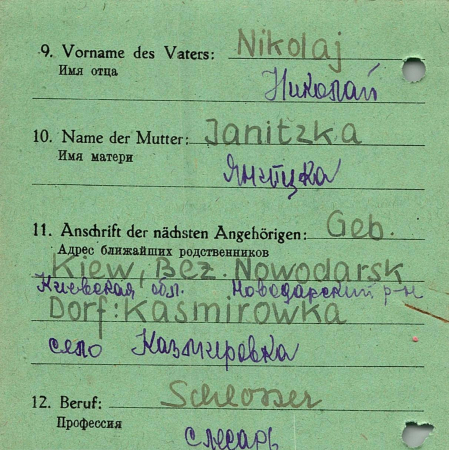 9. Vorname des Vaters: Nikolaj
Имя отца
Николай
10. Name der Mutter: Janitzka
Имя матери
Янитцка
11. Anschrift der nächsten Angehörigen: Geb.
Адрес ближайших родственников
Kiew, Bez. Nowodarsk
Киевская обл. Новодарский р-н
Dorf: Kasmirowka
село Казмировка
12. Beruf: Schlosser
Профессия
слесарь